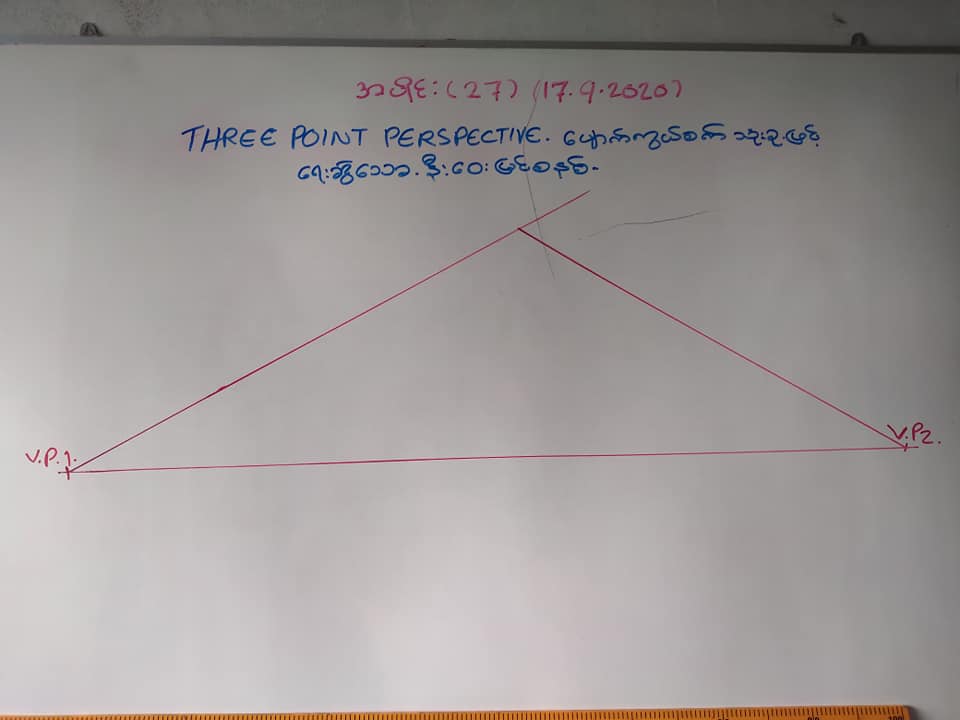 အပိုင်း (27) (17.9.2020)
THREE POINT PERSPECTIVE. ပျောက်ကွယ်စက် သုံးခုဖြင့်
ရေးဆွဲသော အနီးအဝေးမြင်စနစ်.
V.P.1.
V.P2.